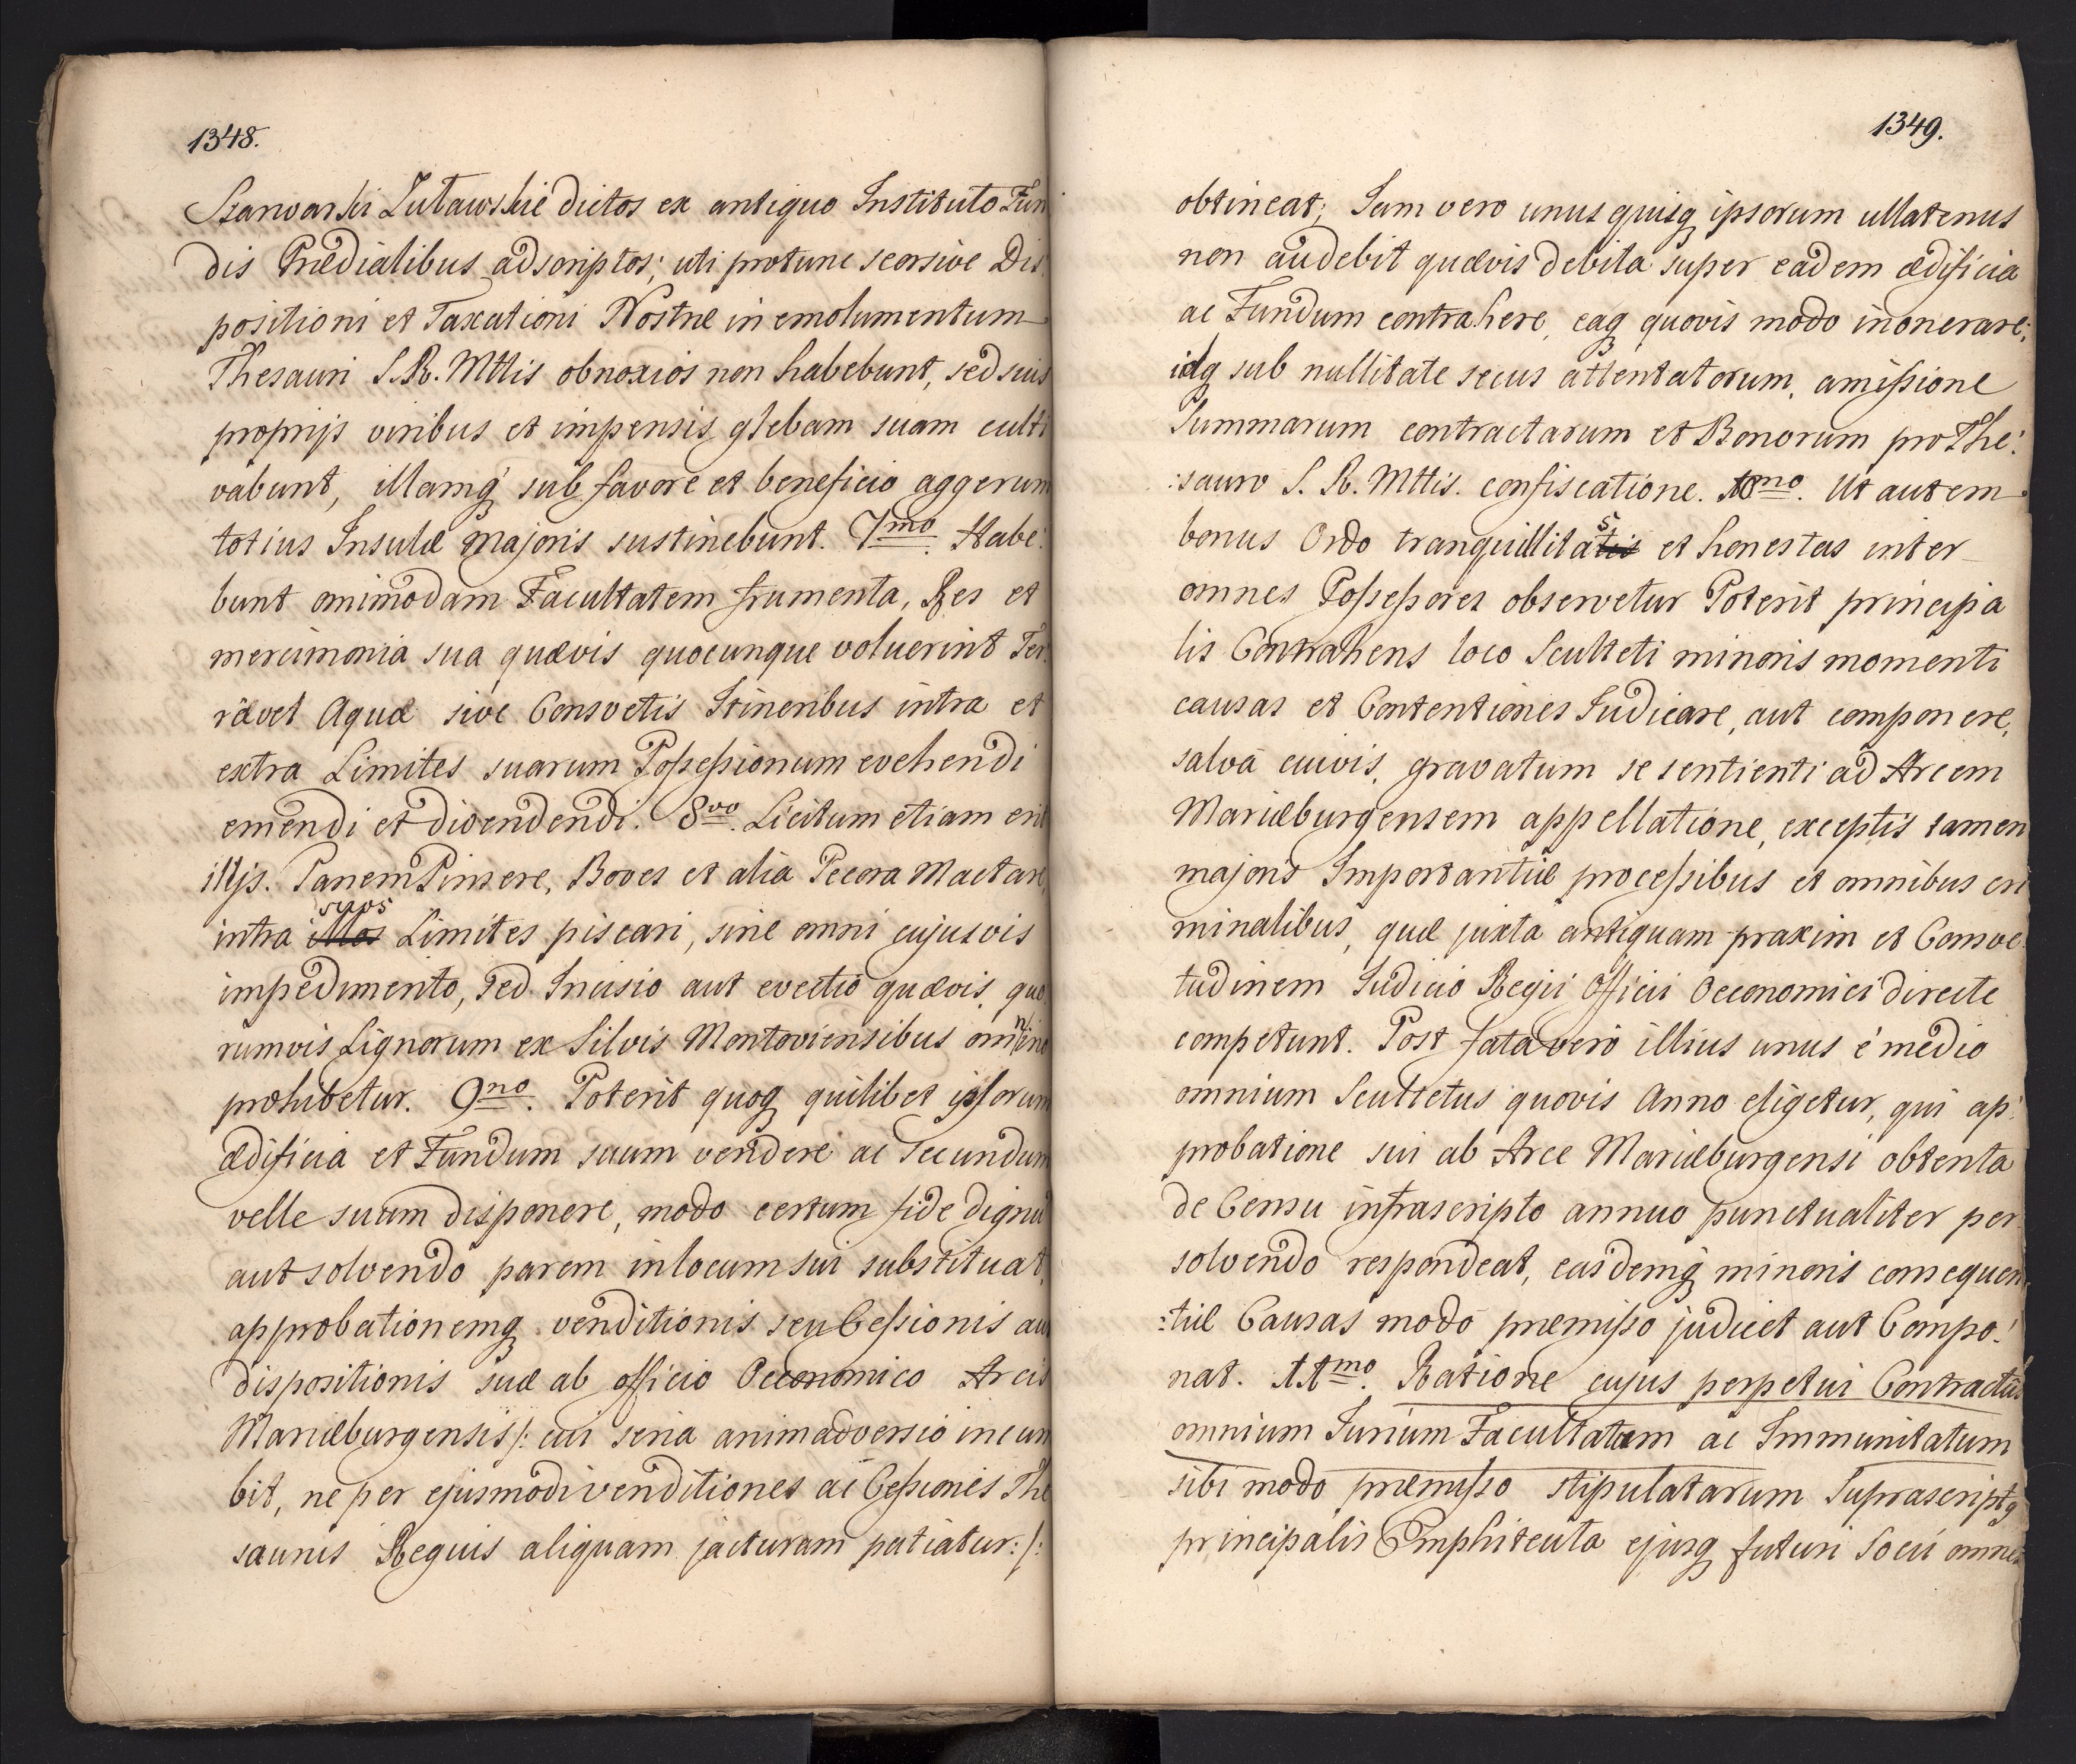 1348.
Szarwarki Zuławskie dictos ex antiquo Instituto Fun
dis Prædialibus adscriptos; uti protunc seorsive Dis
positioni et Taxationi Nostræ in emolumentum
Thesauri S. R. Mttis obnoxios non habebunt, sed suis
proprijs viribus et impensis glebam suam culti
vabunt, illamq́ sub favore et beneficio aggerum
totius Insulæ Majoris sustinebunt. 7mo. Habe:
bunt omimodam Facultatem frumenta, Res et
mercimonia sua quævis quocunque voluerint Ter
rævel Aquæ sive Consvetis Itineribus intra et
extra Limites suarum Possessionum evehendi
emendi et divendendi. 8vo. Licitum etiam erit
illjs. Panem Pinsere, Boves et alia Pecora Mactare,
intra illos suos Limites piscari, sine omni cujusvis
impedimento, sed Incisio aut evectio quævis, quo
rumvis Lignorum ex Silvis Montoviensibus omnino
prohibetur. 9no. Poterit quoq quilibet ipsorum
ædificia et Fundum suum vendere ac secundum
velle suum disponere, modo certum fide dignu
aut solvendo parem in locum sui substituat,
approbationemq venditionis seu Cessionis au
dispositionis suæ ab officio Oeconomico Arcis
Mariæburgensis /: cui seria animadversio incum
bit, ne per ejusmodi venditiones ac Cessiones The
sauris Regius aliquam jacturam patiatur: /:
1349.
obtineat; Jam vero unusquisq ipsorum ullatenus
non audebit quævis debita super eadem ædificia
ac Fundum contrahere, eaq quovis modo inonerare;
idq sub nullitate secus attentatorum, amissione
Summarum contractarum et Bonorum pro The:
:sauro S. R. Mttis. confiscatione. 10mo. Ut autem
bonus Ordo tranquillitatis s et honestas inter
omnes Possessores observetur Poterit principa
lis Contrahens loco Sculteti minoris momenti
causas et Contentiones Judicare, aut componere,
salvâ cuivis, gravatum se sentienti ad Arcem
Mariæburgensem appellatione, exceptis tamen
majoris Importantiæ processibus et omnibus cri
minalibus, quæ juxta antiquam praxim et Consve
tudinem Judicio Regii Officii Oeconomici directe
competunt. Post fata verò illius unus é medio
omnium Scultetus quovis Anno eligetur, qui ap:
probatione sui ab Arce Mariæburgensi obtenta
de Censu infrascripto annuo punctualiter per
solvendo respondeat, easdemq́ minoris consequen
:tiæ Causas modo præmisso judicet aut Compo:
nat. 11mo. Ratione cujus perpetui Contractûs
omnium Jurium Facultatum ac Immunitatum
sibi modo præmisso stipulatarum Suprascriptq
principalis Emphiteuta ejusq futuri Socii omnes